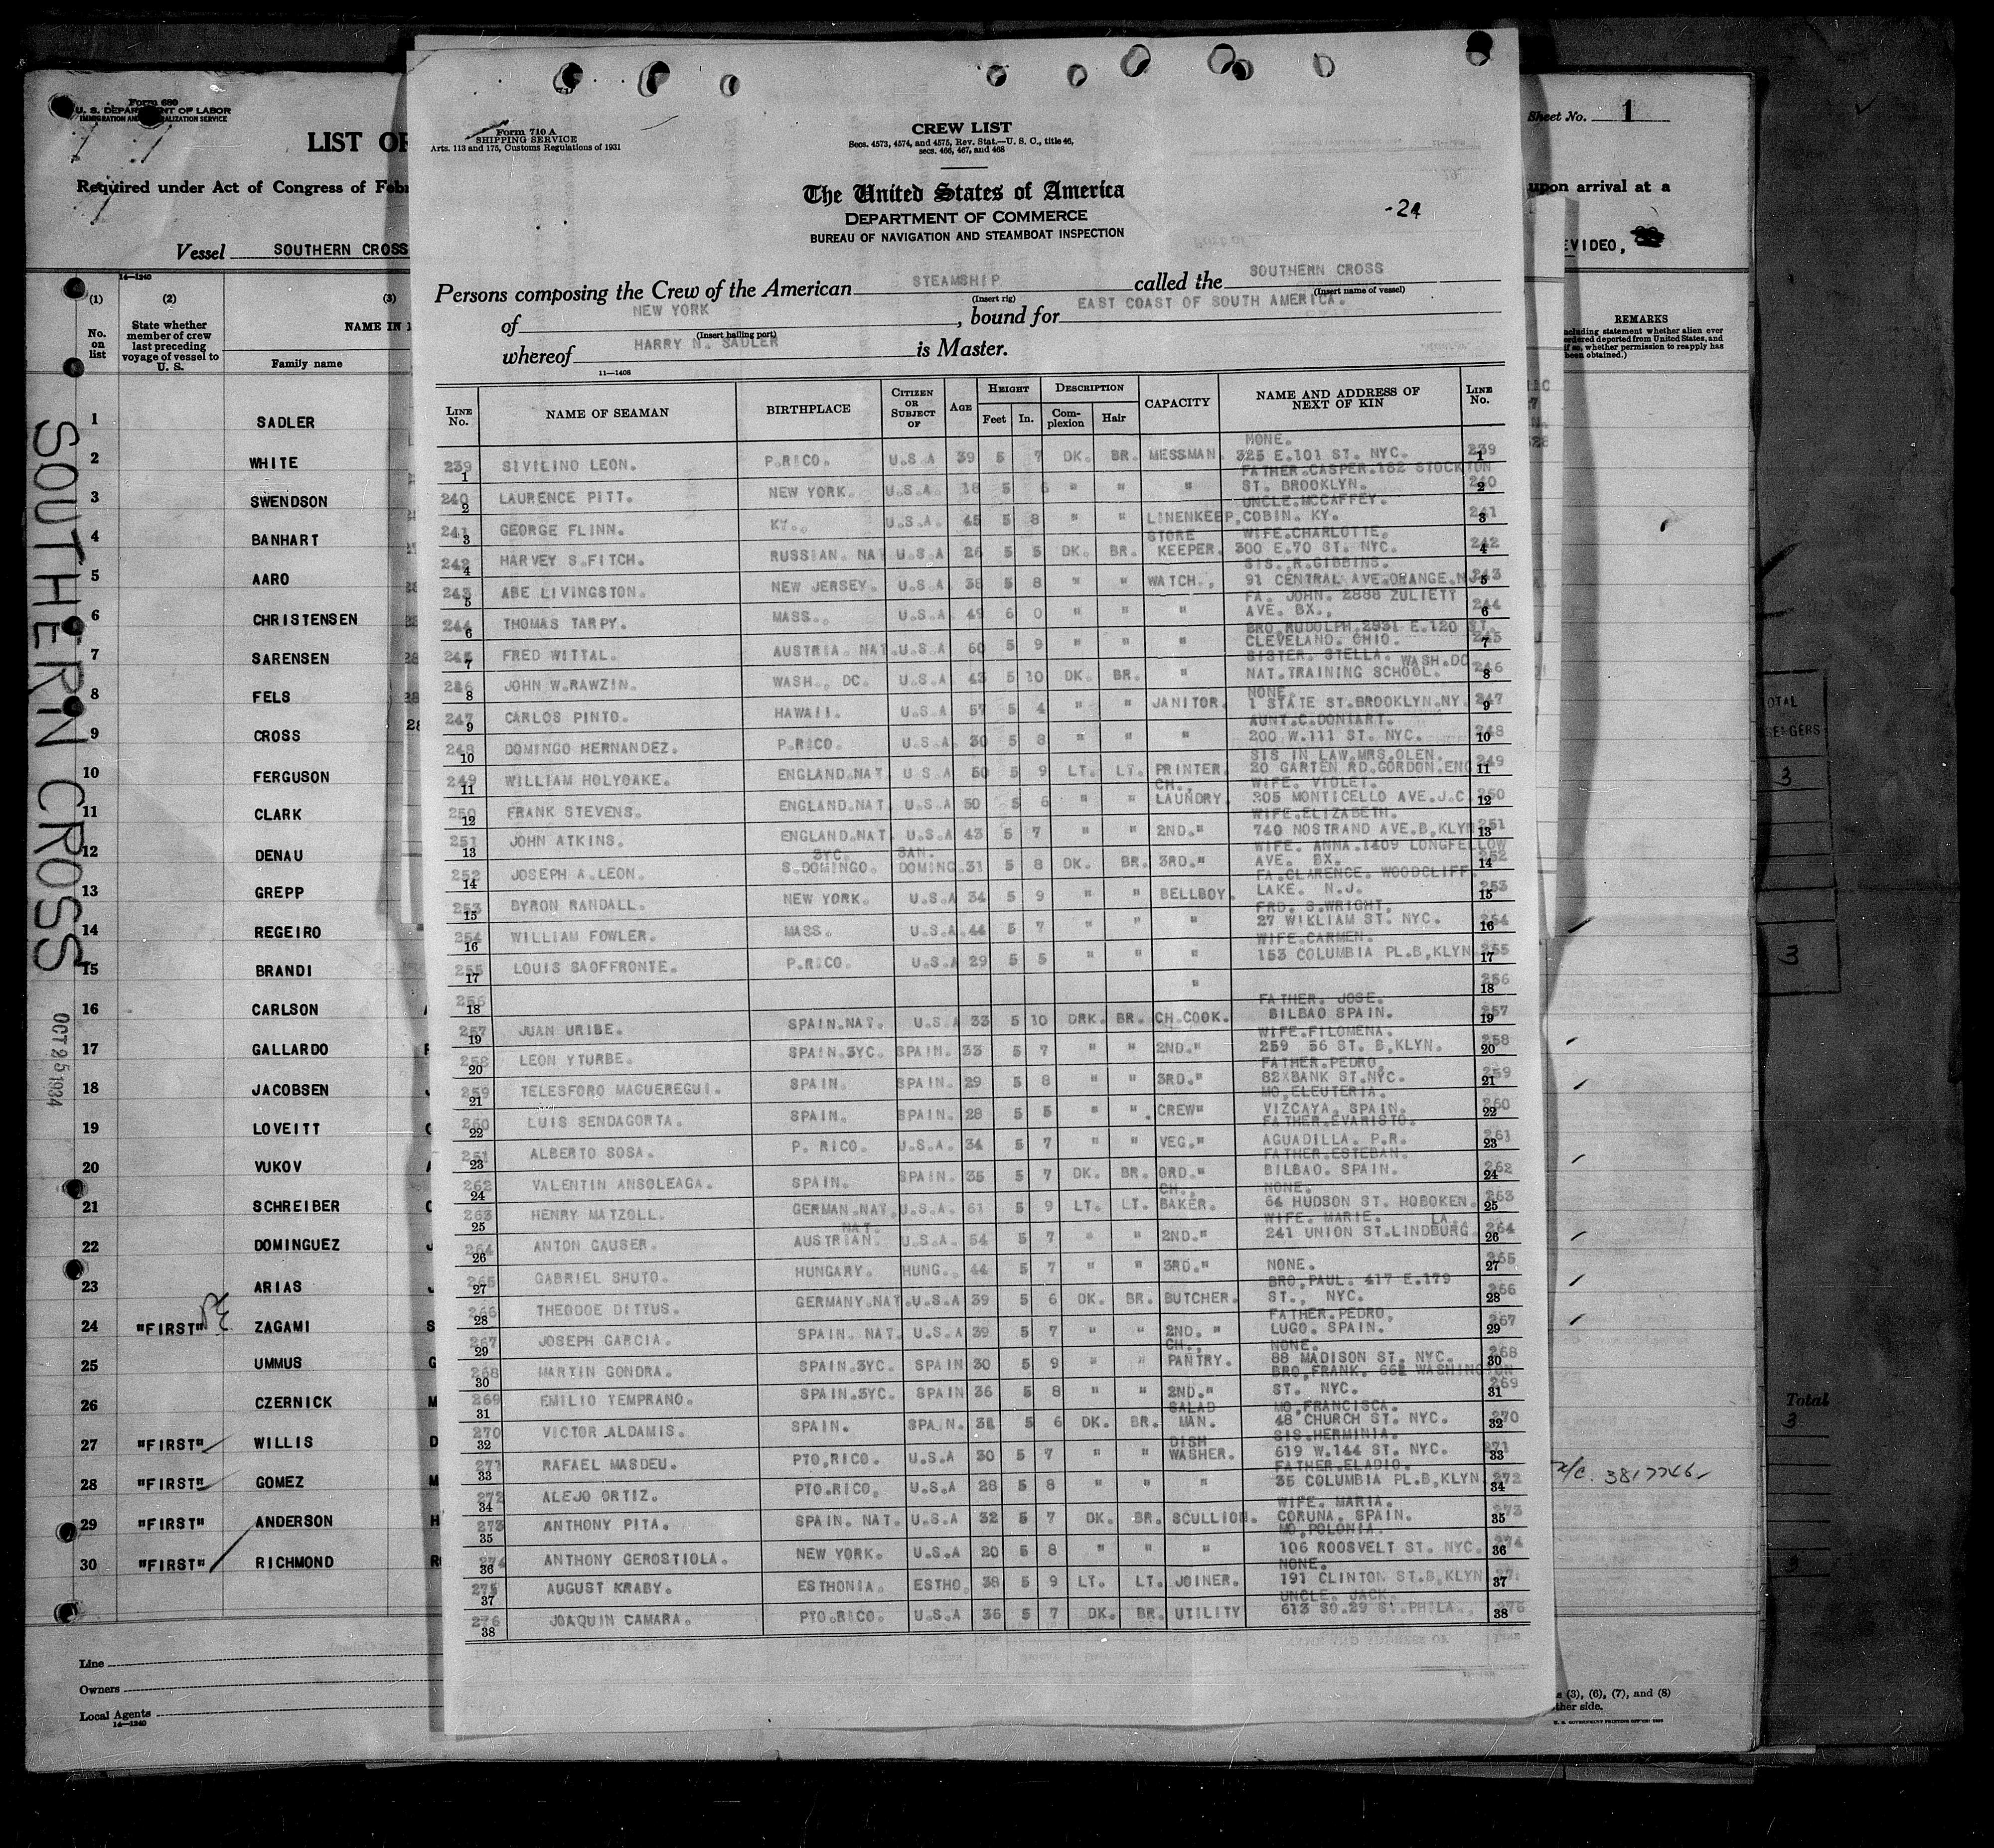 Form 680
U. S. DEPARTMENT OF LABOR
IMMIGRATION AND NATURALIZATION SERVICE
LIST OF
Required under Act of Congress of Febr
Vessel SOUTHERN CROSS
14—1240
(1) (2) (3)
No. on list
State whether member of crew last preceding voyage of vessel to U. S.
NAME IN
Family name
1 SADLER
2 WHITE
3 SWENDSON
4 BANHART
5 AARO
6 CHRISTENSEN
7 SARENSEN
8 FELS
9 CROSS
10 FERGUSON
11 CLARK
12 DENAU
13 GREPP
14 REGEIRO
15 BRANDI
16 CARLSON
17 GALLARDO
18 JACOBSEN
19 LOVEITT
20 VUKOV
21 SCHREIBER
22 DOMINGUEZ
23 ARIAS
24 "FIRST" ZAGAMI
25 UMMUS
26 CZERNICK
27 "FIRST" WILLIS
28 "FIRST" GOMEZ
29 "FIRST" ANDERSON
30 "FIRST" RICHMOND
Line
Owners
Local Agents
14—1240
SOUTHERN CROSS
OCT 25 1934
Form 710 A
SHIPPING SERVICE
Arts. 113 and 175, Customs Regulations of 1931
CREW LIST
Secs. 4573, 4574, and 4575, Rev. Stat.—U. S. C., title 46,
secs. 466, 467, and 468
The United States of America
DEPARTMENT OF COMMERCE
BUREAU OF NAVIGATION AND STEAMBOAT INSPECTION
-24
Persons composing the Crew of the American STEAMSHIP called the SOUTHERN CROSS
(Insert rig) (Insert name of vessel)
of NEW YORK, bound for EAST COAST OF SOUTH AMERICA.
(Insert hailing port)
whereof HARRY N. SADLER is Master.
11—1408
LINE No. NAME OF SEAMAN BIRTHPLACE CITIZEN OR SUBJECT OF AGE HEIGHT Feet In. DESCRIPTION Complexion Hair CAPACITY NAME AND ADDRESS OF NEXT OF KIN LINE No.
239 1 SIVILINO LEON. P.RICO. U.S.A 39 5 7 DK. BR. MESSMAN. NONE. 325 E.101 ST. NYC. 239 1
240 2 LAURENCE PITT. NEW YORK. U.S.A. 18 5 6 " " " FATHER.CASPER.182 STOCKTON ST. BROOKLYN. 240 2
241 3 GEORGE FLINN. KY.. U.S.A. 45 5 8 " " LINENKEEP, UNCLE.MCCAFFEY. COBIN. KY. 241 3
242 4 HARVEY S.FITCH. RUSSIAN. NAT U.S.A 26 5 5 DK. BR. STORE KEEPER. WIFE.CHARLOTTE. 300 E.70 ST. NYC. 242 4
243 5 ABE LIVINGSTON. NEW JERSEY. U.S.A 38 5 8 " " WATCH., SIS., R.GIBBINS. 91 CENTRAL AVE.ORANGE.NJ 243 5
244 6 THOMAS TARPY. MASS.. U.S.A. 49 6 0 " " " FA. JOHN. 2888 ZULIETT AVE. BX., 244 6
245 7 FRED WITTAL. AUSTRIA. NAT. U.S.A 60 5 9 " " " BRO.RUDOLPH.2931 E.120 ST. CLEVELAND. OHIO. 245 7
246 8 JOHN W.RAWZIN. WASH., DC. U.S.A. 43 5 10 DK. BR. " SISTER. STELLA. WASH.DC NAT.TRAINING SCHOOL. 246 8
247 9 CARLOS PINTO. HAWAII. U.S.A 57 5 4 " " JANITOR. NONE. 1 STATE ST.BROOKLYN.NY. 247 9
248 10 DOMINGO HERNANDEZ. P.RICO. U.S.A. 30 5 8 " " " AUNT.C.DONIART. 200 W.111 ST. NYC. 248 10
249 11 WILLIAM HOLYOAKE. ENGLAND.NAT. U S A 50 5 9 LT. LT. PRINTER. SIS IN LAW.MRS.OLEN. 20 GARTEN RD.GORDON.ENG 249 11
250 12 FRANK STEVENS. ENGLAND.NAT. U.S.A 50 5 6 " " CH., LAUNDRY. WIFE. VIOLET. 205 MONTICELLO AVE.J.C. 250 12
251 13 JOHN ATKINS. ENGLAND.NAT. U.S.A 43 5 7 " " 2ND." WIFE.ELIZABETH. 740 NOSTRAND AVE.B,KLYN 251 13
252 14 JOSEPH A.LEON. 3YC. S.DOMINGO. SAN. DOMING. 31 5 8 DK. BR. 3RD." WIFE. ANNA.1409 LONGFELLOW AVE. BX. 252 14
253 15 BYRON RANDALL. NEW YORK. U.S.A 34 5 9 " " BELLBOY. FA.CLARENCE. WOODCLIFF. LAKE. N.J. 253 15
254 16 WILLIAM FOWLER. MASS. U.S.A. 44 5 7 " " " FRD. S.WRIGHT. 27 WIKLIAM ST. NYC. 254 16
255 17 LOUIS SAOFFRONTE. P.RICO. U.S.A 29 5 5 " " " WIFE.CARMEN. 153 COLUMBIA PL.B,KLYN 255 17
256 18 " 256 18
257 19 JUAN URIBE. SPAIN.NAT. U.S.A 33 5 10 DRK. BR. CH.COOK. FATHER. JOSE. BILBAO SPAIN. 257 19
258 20 LEON YTURBE. SPAIN.3YC. SPAIN. 33 5 7 " " 2ND." WIFE.FILOMENA. 259 56 ST. B,KLYN. 258 20
259 21 TELESFORO MAGUEREGUI. SPAIN. SPAIN. 29 5 8 " " 3RD." FATHER.PEDRO. 82XBANK ST.NYC. 259 21
260 22 LUIS SENDAGORTA. SPAIN. SPAIN. 28 5 5 " " CREW" MO,ELEUTERIA. VIZCAYA. SPAIN. 260 22
251 23 ALBERTO SOSA. P. RICO. U.S.A. 34 5 7 " " VEG." FATHER.EVARISTO. AGUADILLA. P.R. 261 23
262 24 VALENTIN ANSOLEAGA. SPAIN. SPAIN. 35 5 7 DK. BR. GRD." FATHER.ESTEBAN. BILBAO. SPAIN. 262 24
263 25 HENRY MATZOLL. GERMAN.NAT. U.S.A. 61 5 9 LT. LT. CH., BAKER. NONE. 64 HUDSON ST. HOBOKEN. 263 25
264 26 ANTON GAUSER. NAT. AUSTRIAN. U.S.A. 54 5 7 " " 2ND." WIFE. MARIE. LA.. 241 UNION ST.LINDBURG. 264 26
265 27 GABRIEL SHUTO. HUNGARY. HUNG., 44 5 7 " " 3RD." NONE. 265 27
266 28 THEODOE DITTUS. GERMANY.NAT. U.S.A 39 5 6 DK. BR. BUTCHER. BRO,PAUL. 417 E.179 ST., NYC. 266 28
267 29 JOSEPH GARCIA. SPAIN. NAT. U.S.A 39 5 7 " " 2ND. " FATHER.PEDRO, LUGO. SPAIN. 267 29
268 30 MARTIN GONDRA. SPAIN.3YC. SPAIN 30 5 9 " " CH., PANTRY. NONE. 88 MADISON ST. NYC. 268 30
269 31 EMILIO TEMPRANO. SPAIN.3YC. SPAIN 36 5 8 " " 2ND." BRO,FRANK. 661 WASHINGTON ST. NYC. 269 31
270 32 VICTOR ALDAMIS. SPAIN. SPAIN. 38 5 6 DK. BR. SALAD MAN. MO,FRANCISCA. 48 CHURCH ST. NYC. 270 32
271 33 RAFAEL MASDEU. PTO,RICO. U.S.A 30 5 7 " " DISH WASHER. SIS.HERMINIA. 619 W.144 ST. NYC. 271 33
272 34 ALEJO ORTIZ. PTO.RICO. U.S.A 28 5 8 " " " FATHER.ELADIO. 35 COLUMBIA PL.B,KLYN 272 34
273 35 ANTHONY PITA. SPAIN. NAT. U.S.A 32 5 7 DK. BR. SCULLION. WIFE. MARIA. CORUNA. SPAIN. 273 35
274 36 ANTHONY GEROSTIOLA. NEW YORK. U.S.A 20 5 8 " " " MO,POLONIA. 106 ROOSVELT ST. NYC. 274 36
275 37 AUGUST KRABY. ESTHONIA. ESTHO. 38 5 9 LT. LT. JOINER. NONE. 191 CLINTON ST.B,KLYN 37
276 38 JOAQUIN CAMARA. PTO.RICO. U.S.A 36 5 7 DK. BR. UTILITY UNCLE. JACK. 613 SO.29 ST.PHILA., 276 38
Sheet No. 1
upon arrival at a
EVIDEO,
REMARKS
(including statement whether alien ever
ordered deported from United States, and
if so, whether permission to reapply has
been obtained.)
3817746
(3), (6), (7), and (8)
other side.
U. S. GOVERNMENT PRINTING OFFICE
OTAL
SENGERS
3
3
Total
3